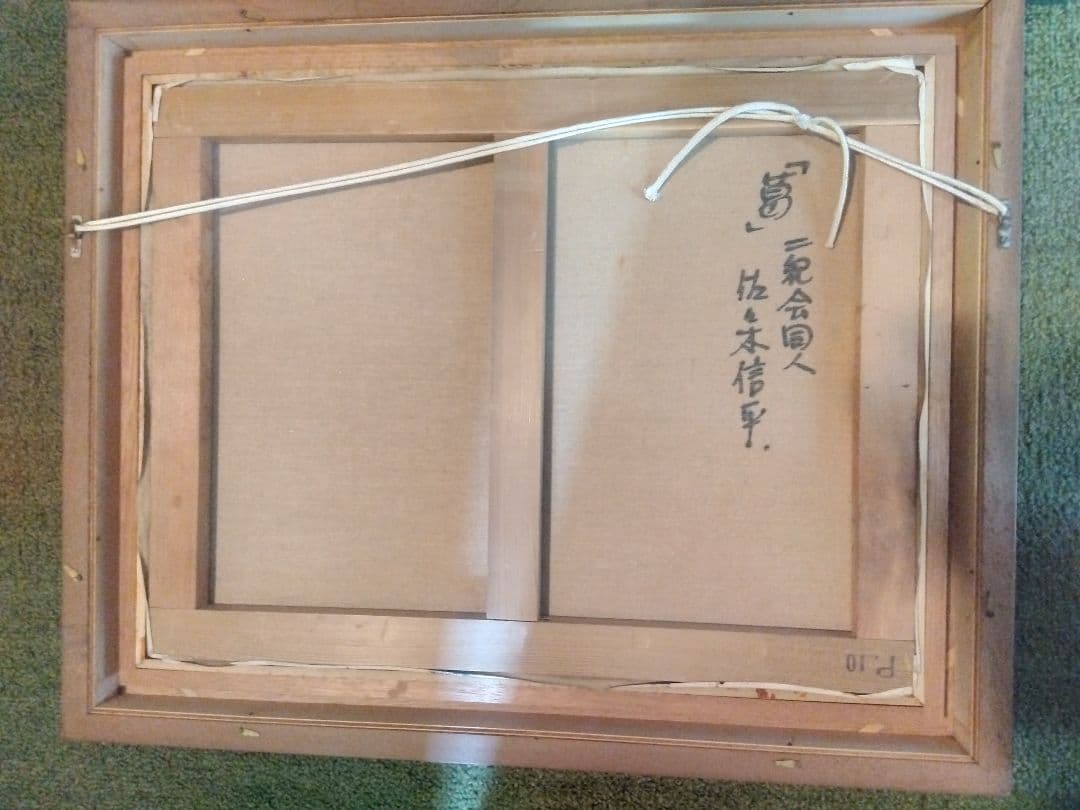 二紀会同人
佐々木信平.
P.10